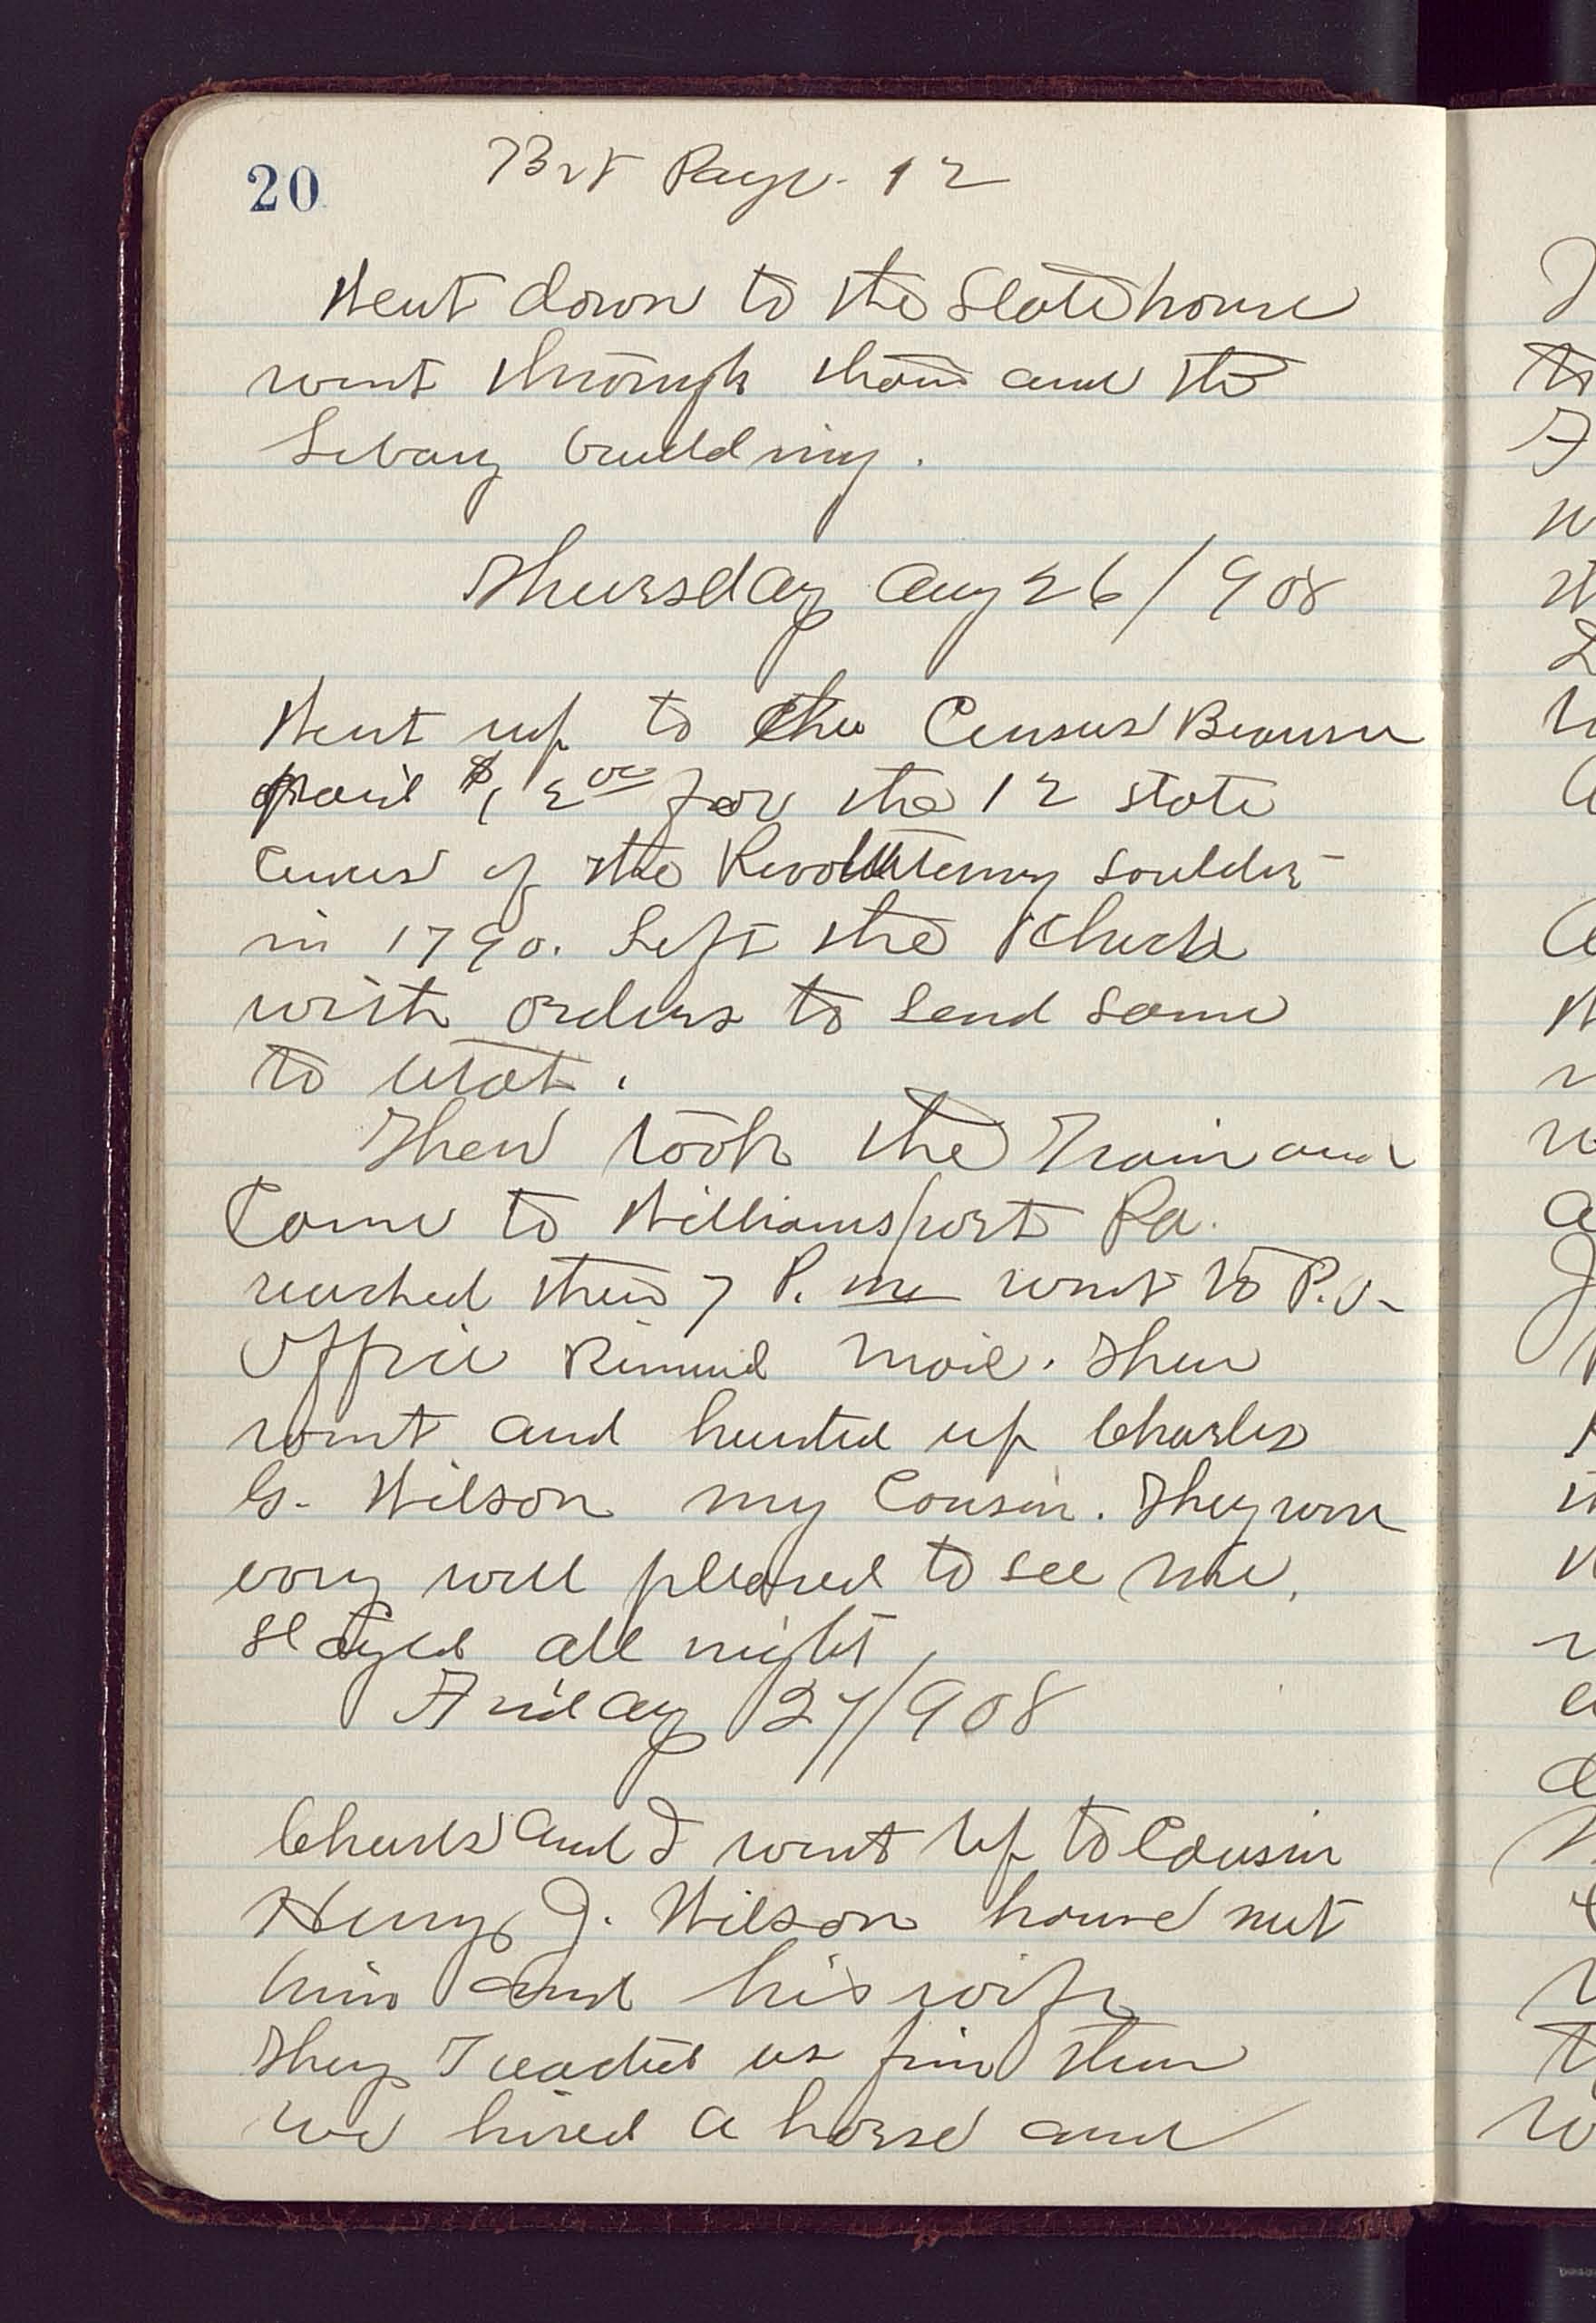 20 Bt Page. 12
Went down to the State house
went through them and the
Libary building.
Thursday Aug 26/908
Went up to the Census Beauru
paid $12 00 for the 12 state
Census of the Revolutenary Soulders
in 1790. Left the Check
with orders to send same
to Utah.
Then took the Train and
Come to Williamsport Pa.
reached there 7 P. m went to P.O.
Office Recived mail. Then
went and hunted up Charles
G. Wilson my Cousin. They were
very well pleased to see me.
Stayed all night.
Friday 27/908
Charles and I went up to Cousin
Henry J. Wilson house met
him and his wife
They Treated us fine then
we hired a horse and